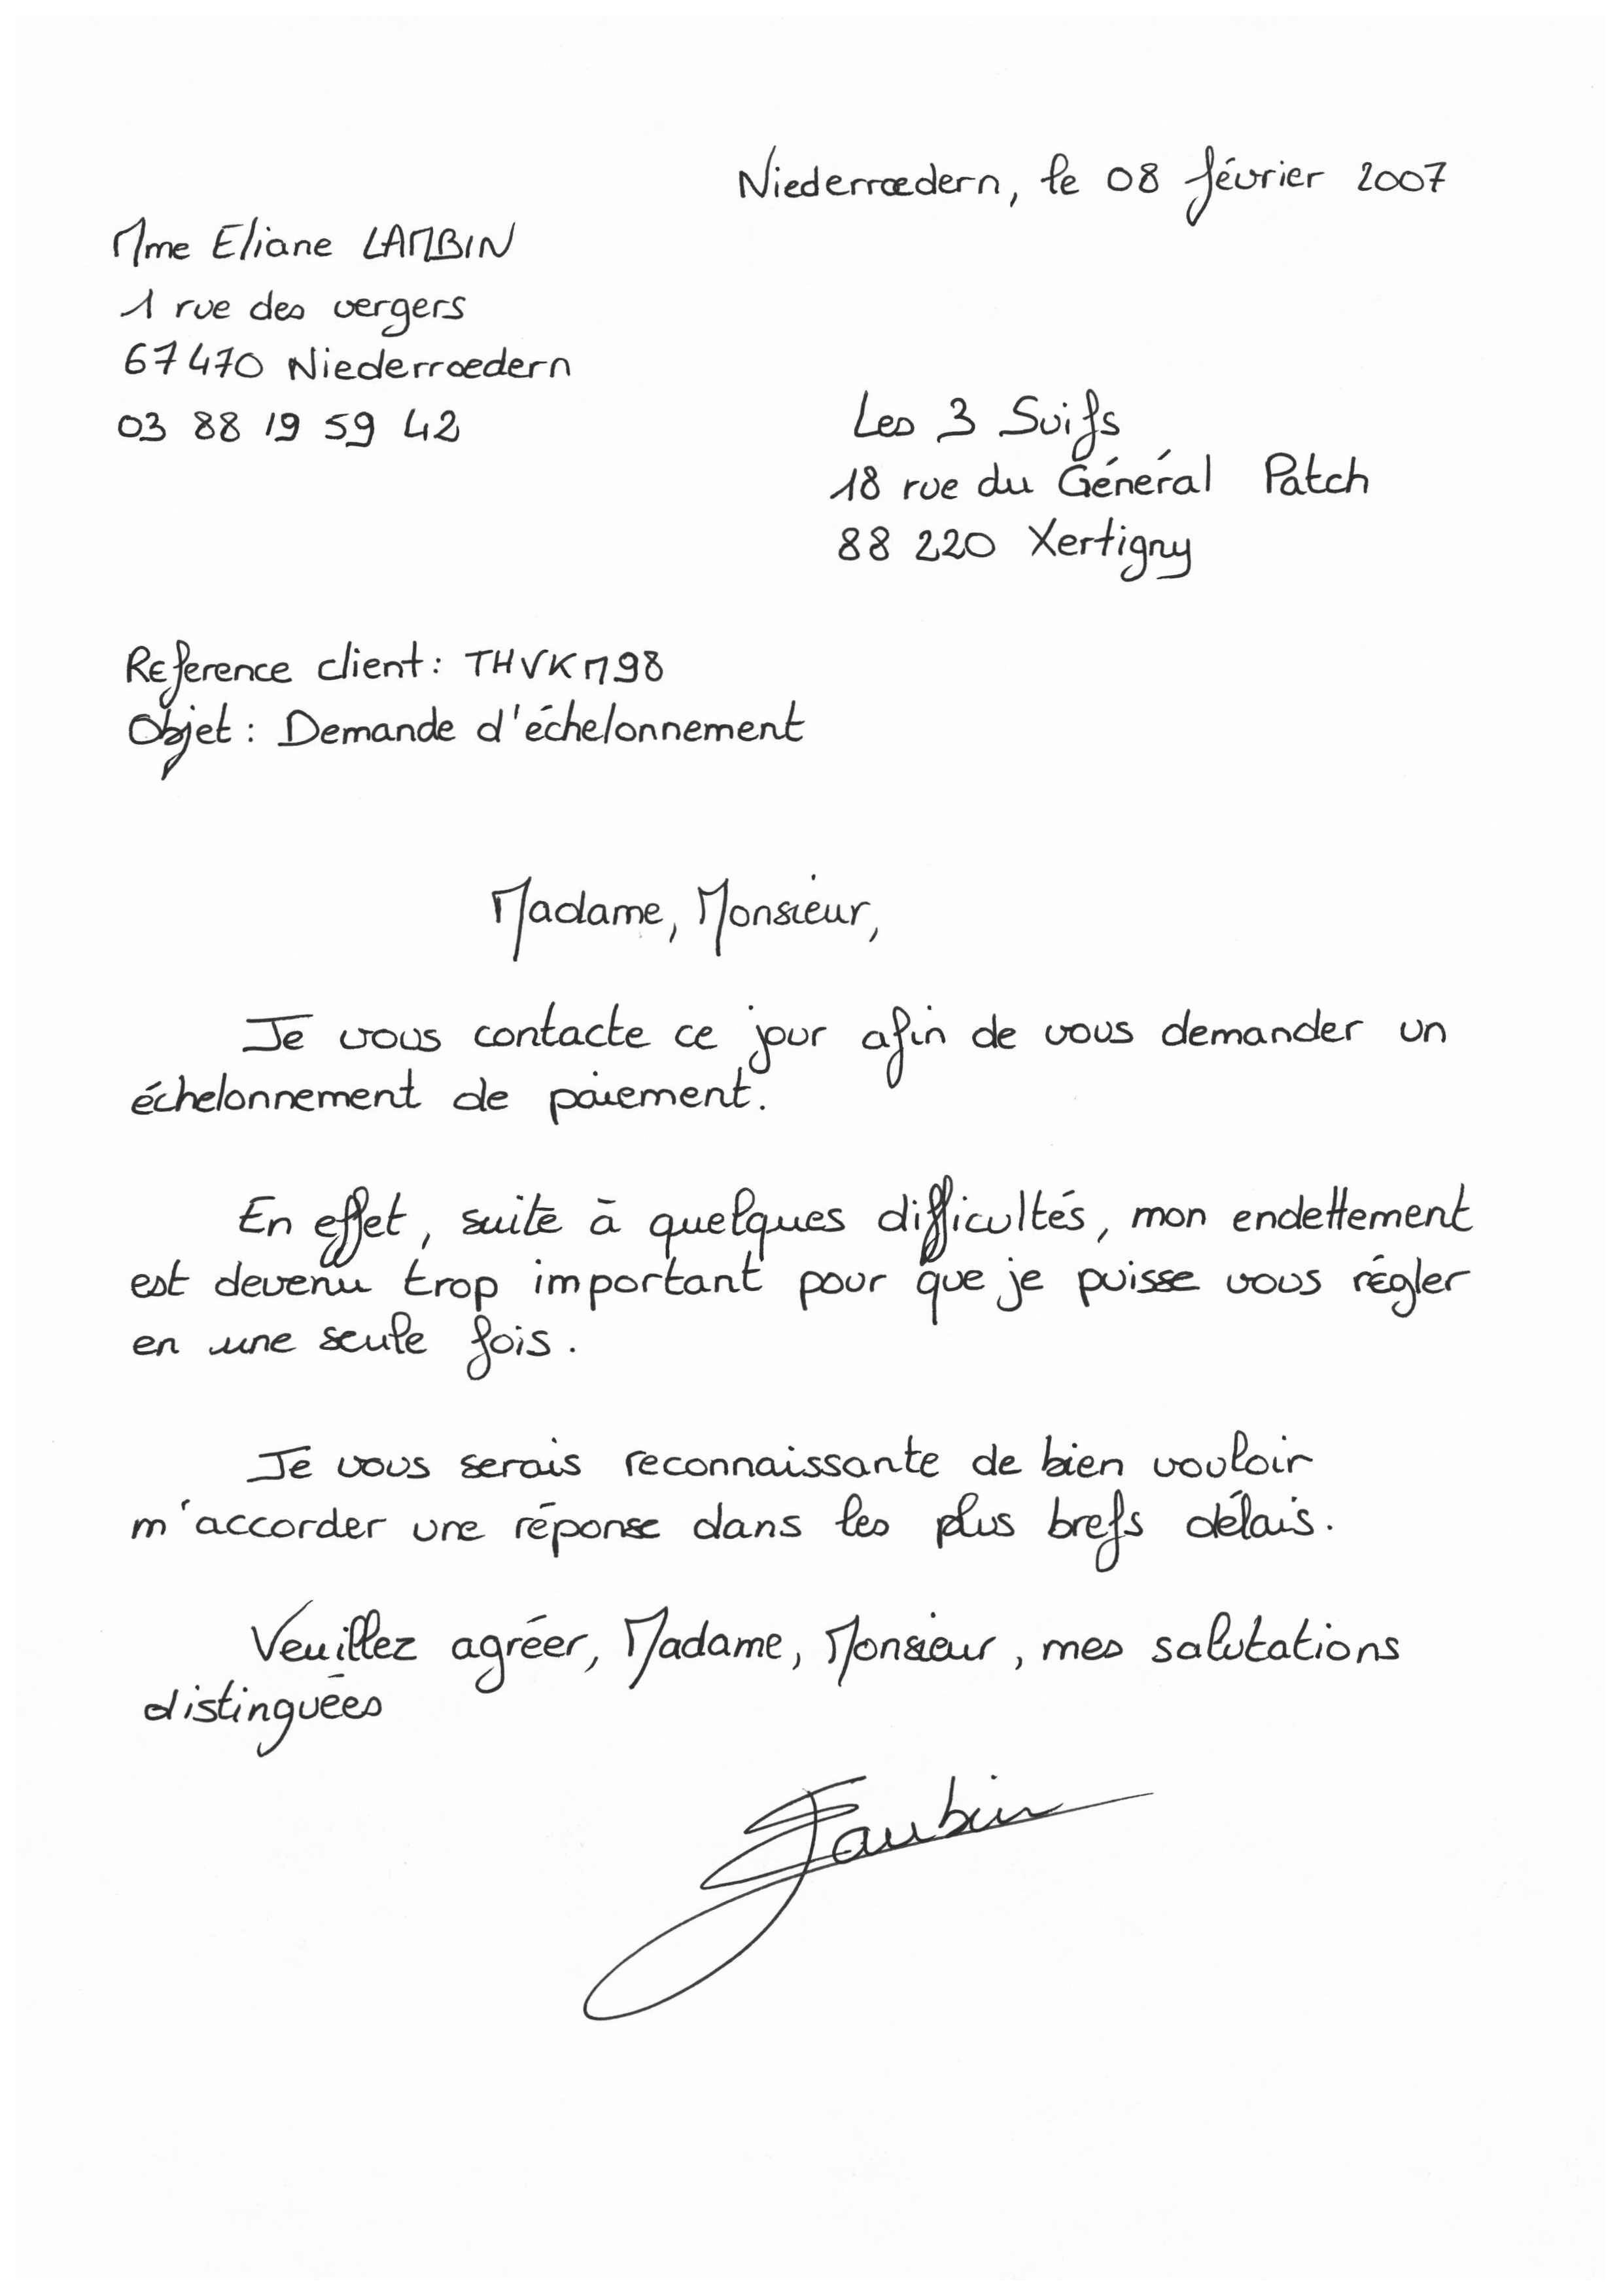 Niederrœdern, le 08 février 2007
Mme Eliane LAMBIN
1 rue des vergers
67470 Niederroedern
03 88 19 59 42
Les 3 Suifs
18 rue du Général Patch
88 220 Xertigny
Reference client : THVKM98
Objet : Demande d'échelonnement
Madame, Monsieur,
Je vous contacte ce jour afin de vous demander un
échelonnement de paiement.
En effet, suite à quelques difficultés, mon endettement
est devenu trop important pour que je puisse vous régler
en une seule fois.
Je vous serais reconnaissante de bien vouloir
m'accorder une réponse dans les plus brefs délais.
Veuillez agréer, Madame, Monsieur, mes salutations
distinguées